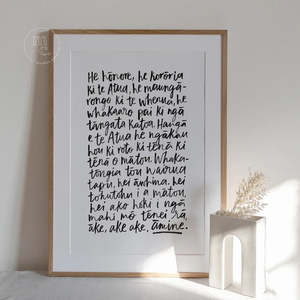 He hōnore, he korōria
ki te Atua, he maungā-
rongo ki te whenua, he
whakaaro pai ki ngā
tāngata katoa. Hangā
e te Atua he ngākau
hou ki roto, ki tēnā ki
tēnā o mātou. Whaka-
tōngia tou wairua
tapu, hei āwhina, hei
tohutohu i a mātou,
hei ako hoki i ngā
mahi mō tēnei rā
āke, ake ake, āmine.